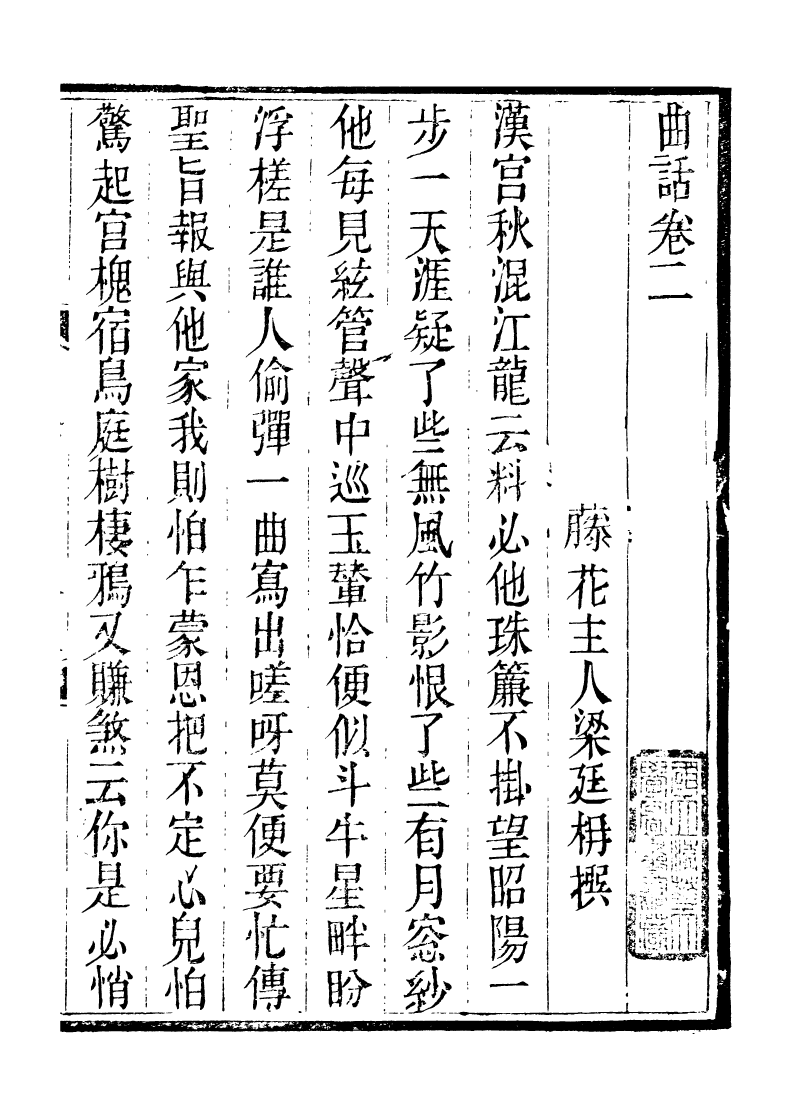 曲話卷二
藤花主人梁廷枏撰
漢宮秋混江龍云料必他珠簾不掛望昭陽一
步一天涯疑了些無風竹影恨了些有月窓紗
他每見絃管聲中巡玉輦恰便似斗牛星畔盼
浮槎是誰人偷彈一曲寫出嗟呀莫便要忙傳
聖旨報與他家我則怕乍蒙恩把不定心兒怕
驚起宮槐宿鳥庭樹棲鴉又賺煞云你是必悄